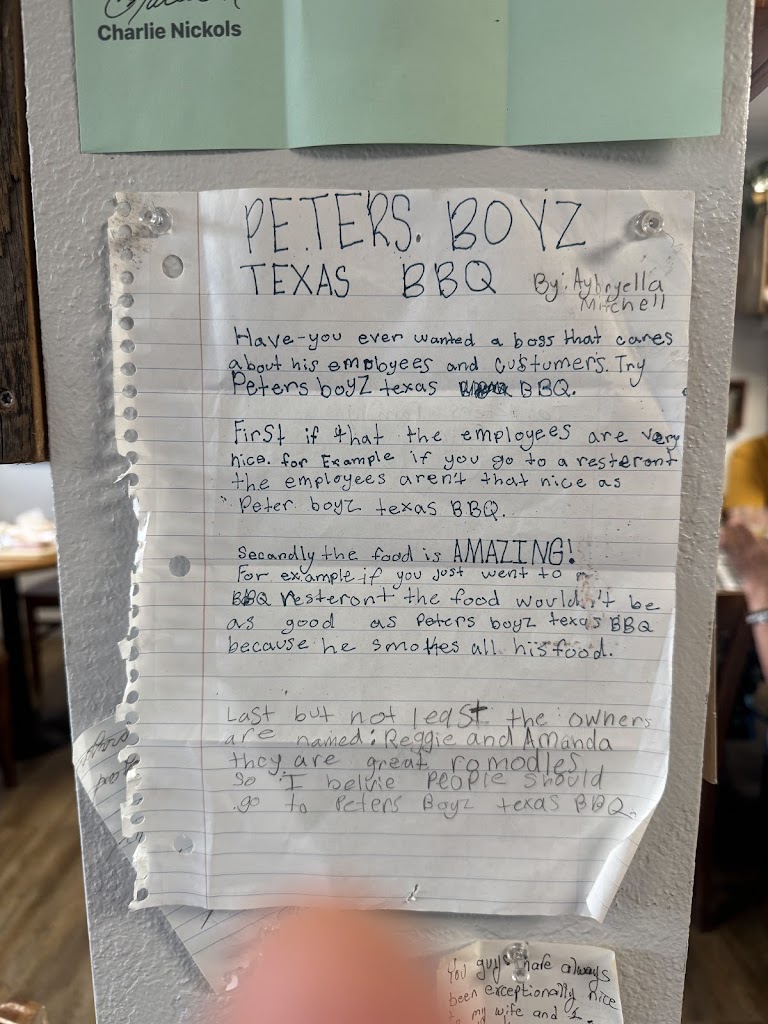 Charlie Nickols
PETERS. BOYZ
TEXAS BBQ
By: Aybryella
Mitchell
Have-you ever wanted a boss that cares
about his employees and custumers. Try
Peters boyz texas BBQ.
First if that the employees are very
nice. for Example if you go to a resteront
the employees aren't that nice as
Peter boyz texas BBQ.
Secandly the food is AMAZING!
For example if you just went to
BBQ resteront the food wouldn't be
as good as Peters boyz texas BBQ
because he smokes all his food.
Last but not least the owners
are named: Reggie and Amanda
they are great romodles
so I belvie PEOPLE should
go to Peters Boyz texas BBQ.
You guys have always
been exceptionally nice
to my wife and I.